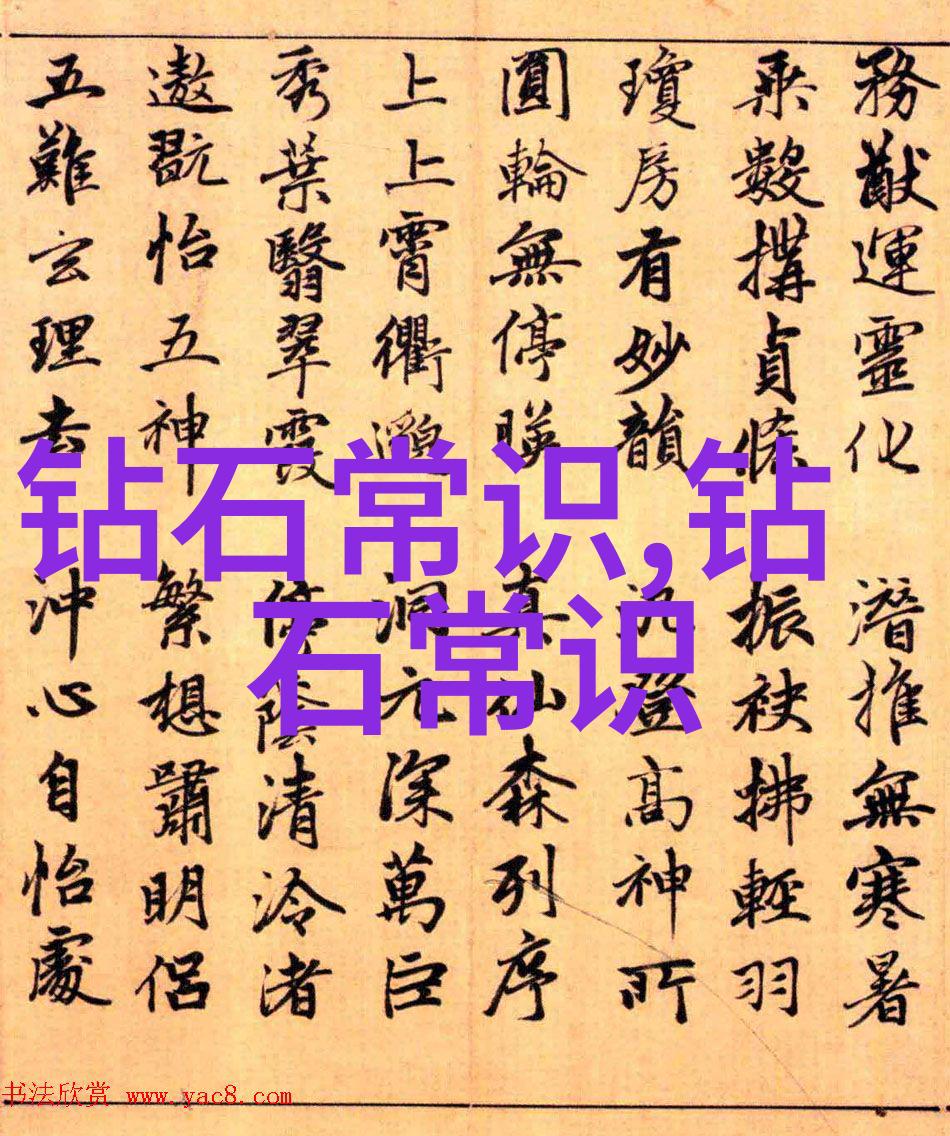 務猷運靈化 潛推無寒暑
乘數構貞條 振袂拂輕羽
瓊房有妙韻 登高神所
圓輪無停暎 真仙森列序
上上霄衢邈 洞元深萬巨
秀葉翳翠霞 停蔭清泠渚
遨翫怡五神 繁想嘯明侶
五難玄理去 沖心自怡處
钻石常识,钻
石常识
书法欣赏 www.yac8.com